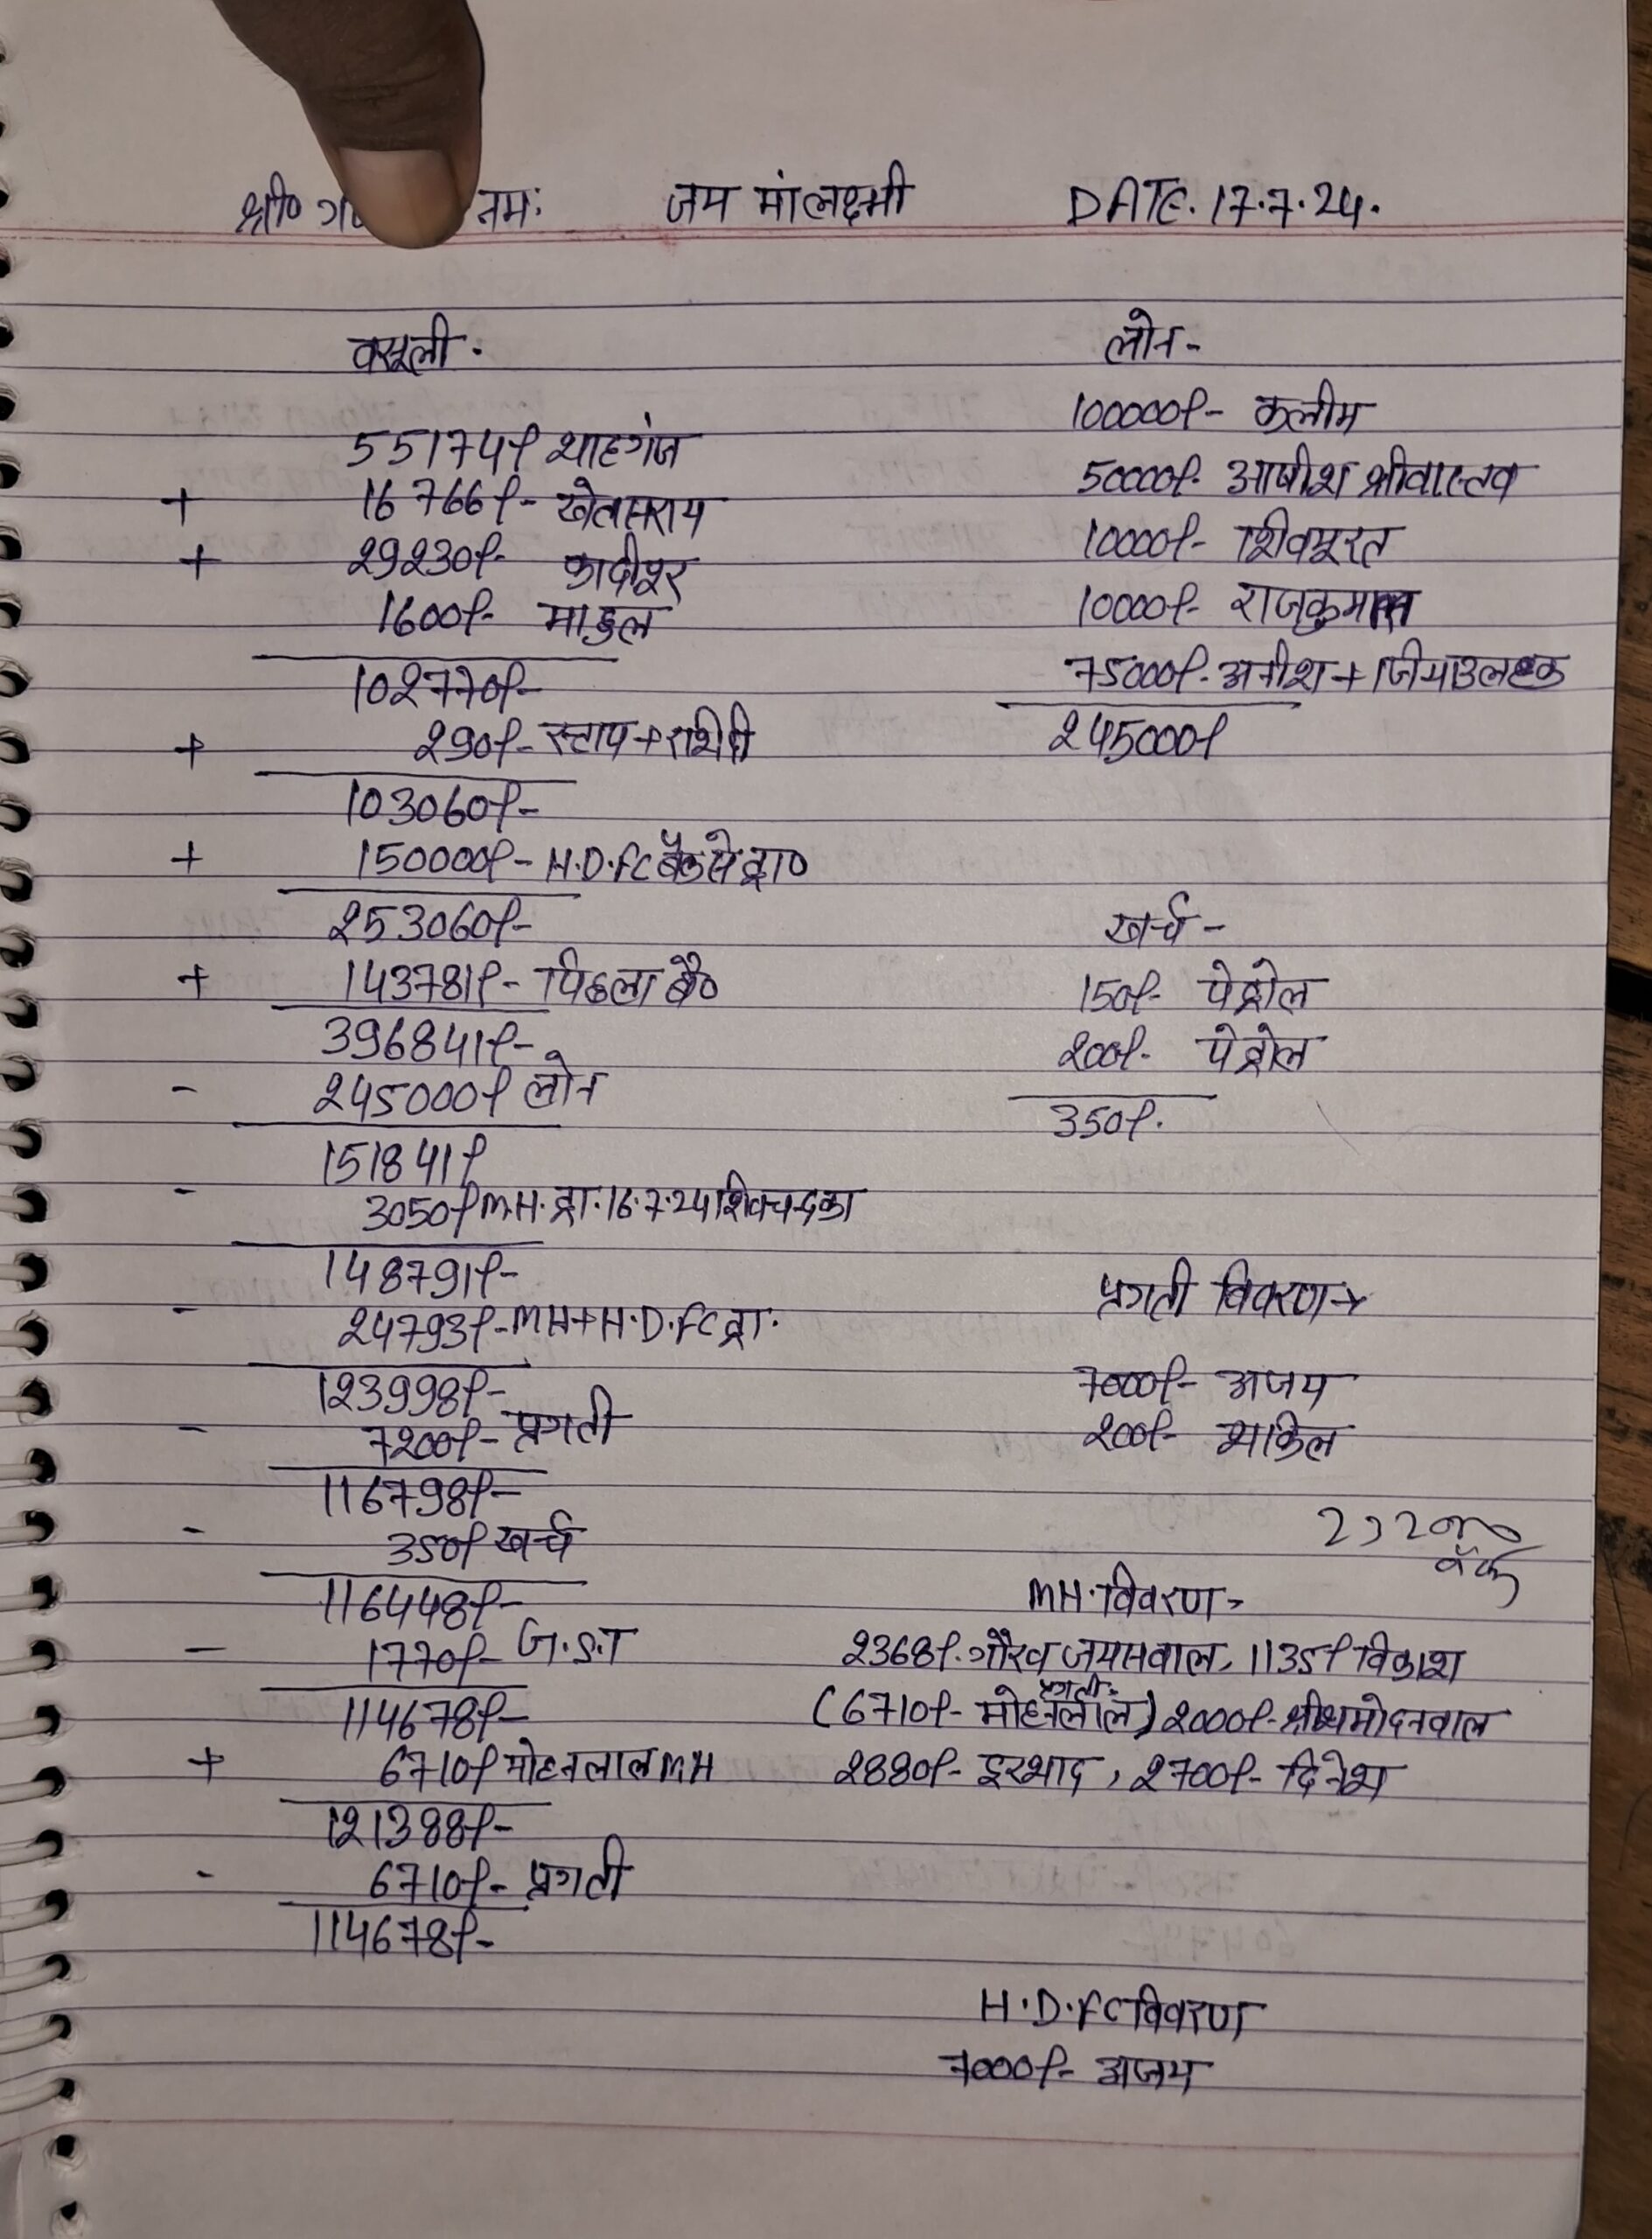 श्री० नमः जय मां लक्ष्मी DATE. 17.7.24.
वसूली.
55174/ शाहगंज
+ 16766/- खेतासराय
+ 29230/- कादीपुर
1600/- माहुल
102770/-
+ 290/- स्टाप+रशीदी
103060/-
+ 150000/- H.D.FC बैंक से ट्रा०
253060/-
+ 143781/- पिछला बै०
396841/-
- 245000/ लोन
151841/
- 3050/ M.H. ट्रा. 16.7.24 शिवचन्द का
148791/-
- 24793/- MH+H.D.FC ट्रा.
123998/-
- 7200/- प्रगती
116798/-
- 350/ खर्च
116448/-
- 1770/- G.S.T
114678/-
+ 6710/ मोहनलाल MH
121388/-
- 6710/- प्रगती
114678/-
लोन-
100000/- कलीम
50000/- आषीश श्रीवास्तव
10000/- शिवमूरत
10000/- राजकुमार
75000/- अनीश+जियाउलहक
245000/
खर्च-
150/- पेट्रोल
200/- पेट्रोल
350/.
प्रगती विवरण→
7000/- अजय
200/- शकिल
बैंक
MH.विवरण>
2368/. गौरव जयसवाल, 1135/ विकाश
प्रगती.
(6710/- मोहनलाल) 2000/- मोदनवाल
2880/- इरशाद, 2700/- दिनेश
H.D.FC विवरण
7000/- अजय